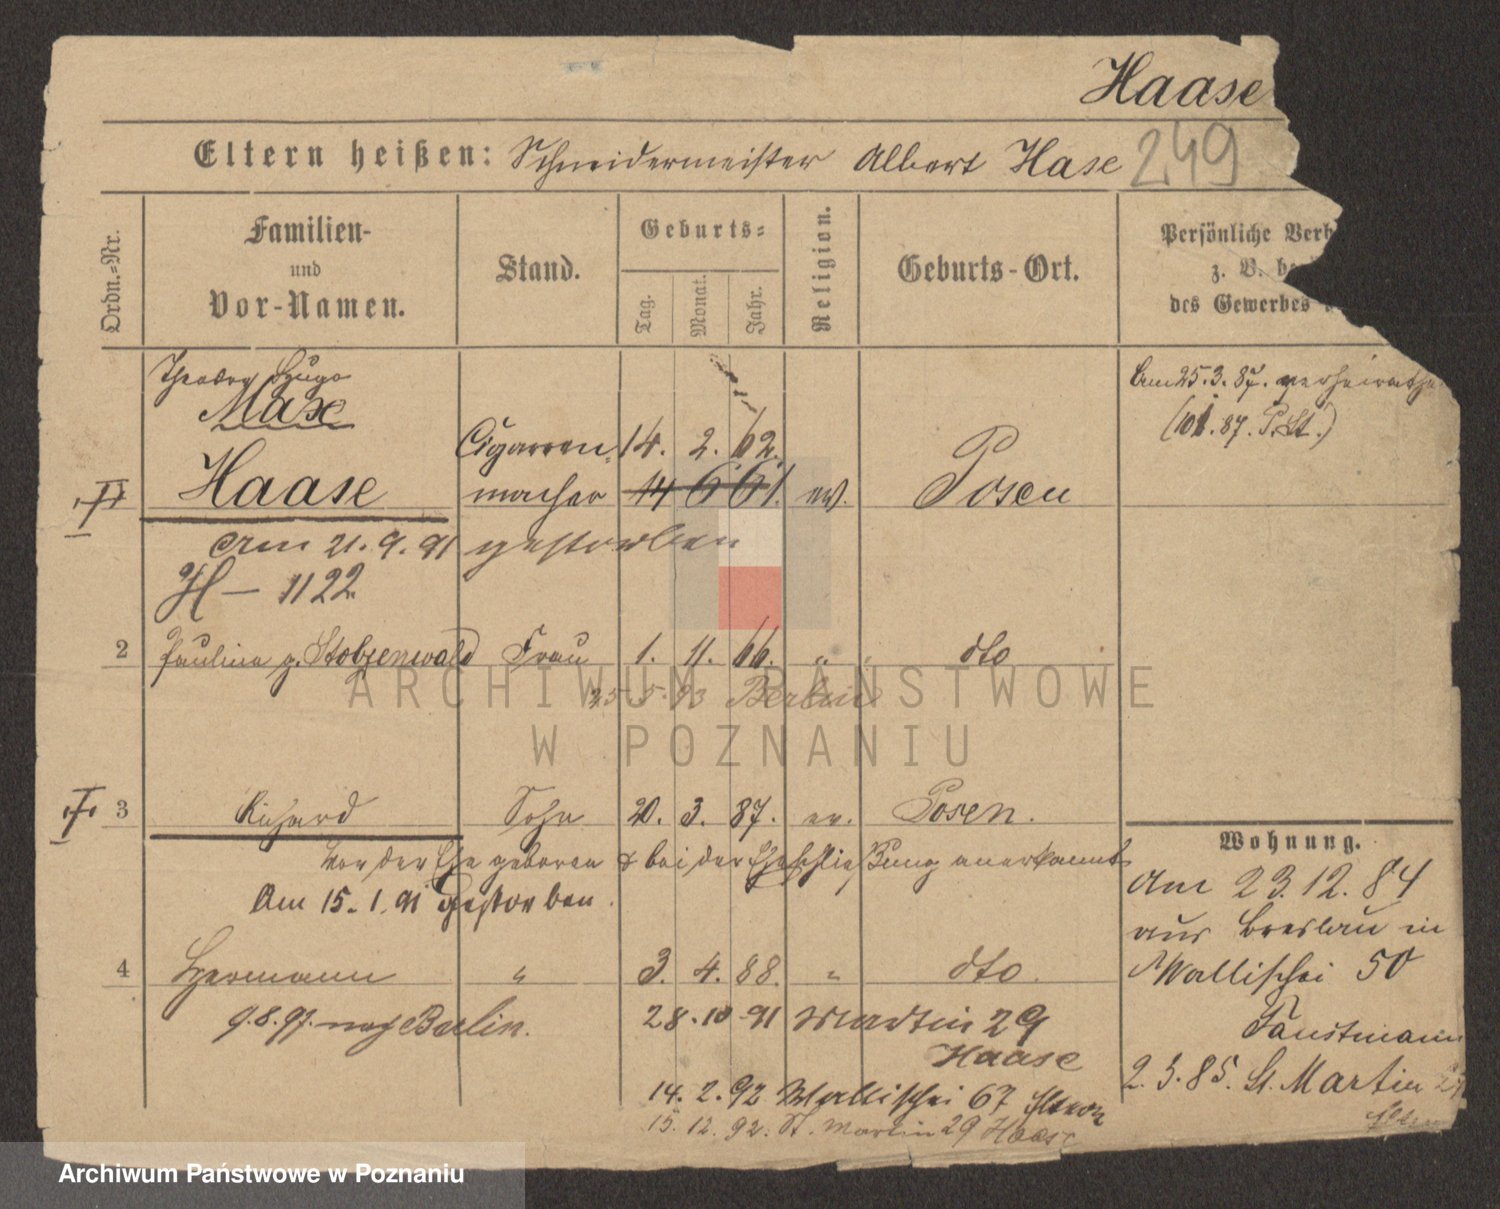 Haase
Eltern heißen: Schneidermeister Albert Hase 249
Ordn.-Nr.
Familien-
und
Vor-Namen.
Stand.
Geburts-
Tag.
Monat.
Jahr.
Religion.
Geburts-Ort.
Persönliche Verh
z. B. be
des Gewerbes
Theodor Hugo
Max
Haase
Cigarren-
macher
14. 2. 62.
14 6 61.
ev.
Posen
Am 25.3.87. verheirathe
(101.87. P.St.)
Am 21.9.91 gestorben
H — 1122
2 Paulina g. Stobzenwald Frau 1. 11. 66. " dto
25.5.93 Berlin
3 Richard Sohn 20. 3. 87. ev. Posen.
Vor der Ehe geboren & bei der Eheschließung anerkannt
Am 15.1.91 gestorben.
4 Hermann " 3. 4. 88. " dto.
9.8.97. nach Berlin.
28.10.91 Martin 29
Haase
14.2.92 Wallischei 67 Eltern
15.12.92. St. Martin 29 Haase
Wohnung.
Am 23.12.84
aus Breslau in
Wallischei 50
Faustmann
2.3.85. St. Martin 29
Eltern
ARCHIWUM PAŃSTWOWE
W POZNANIU
Archiwum Państwowe w Poznaniu